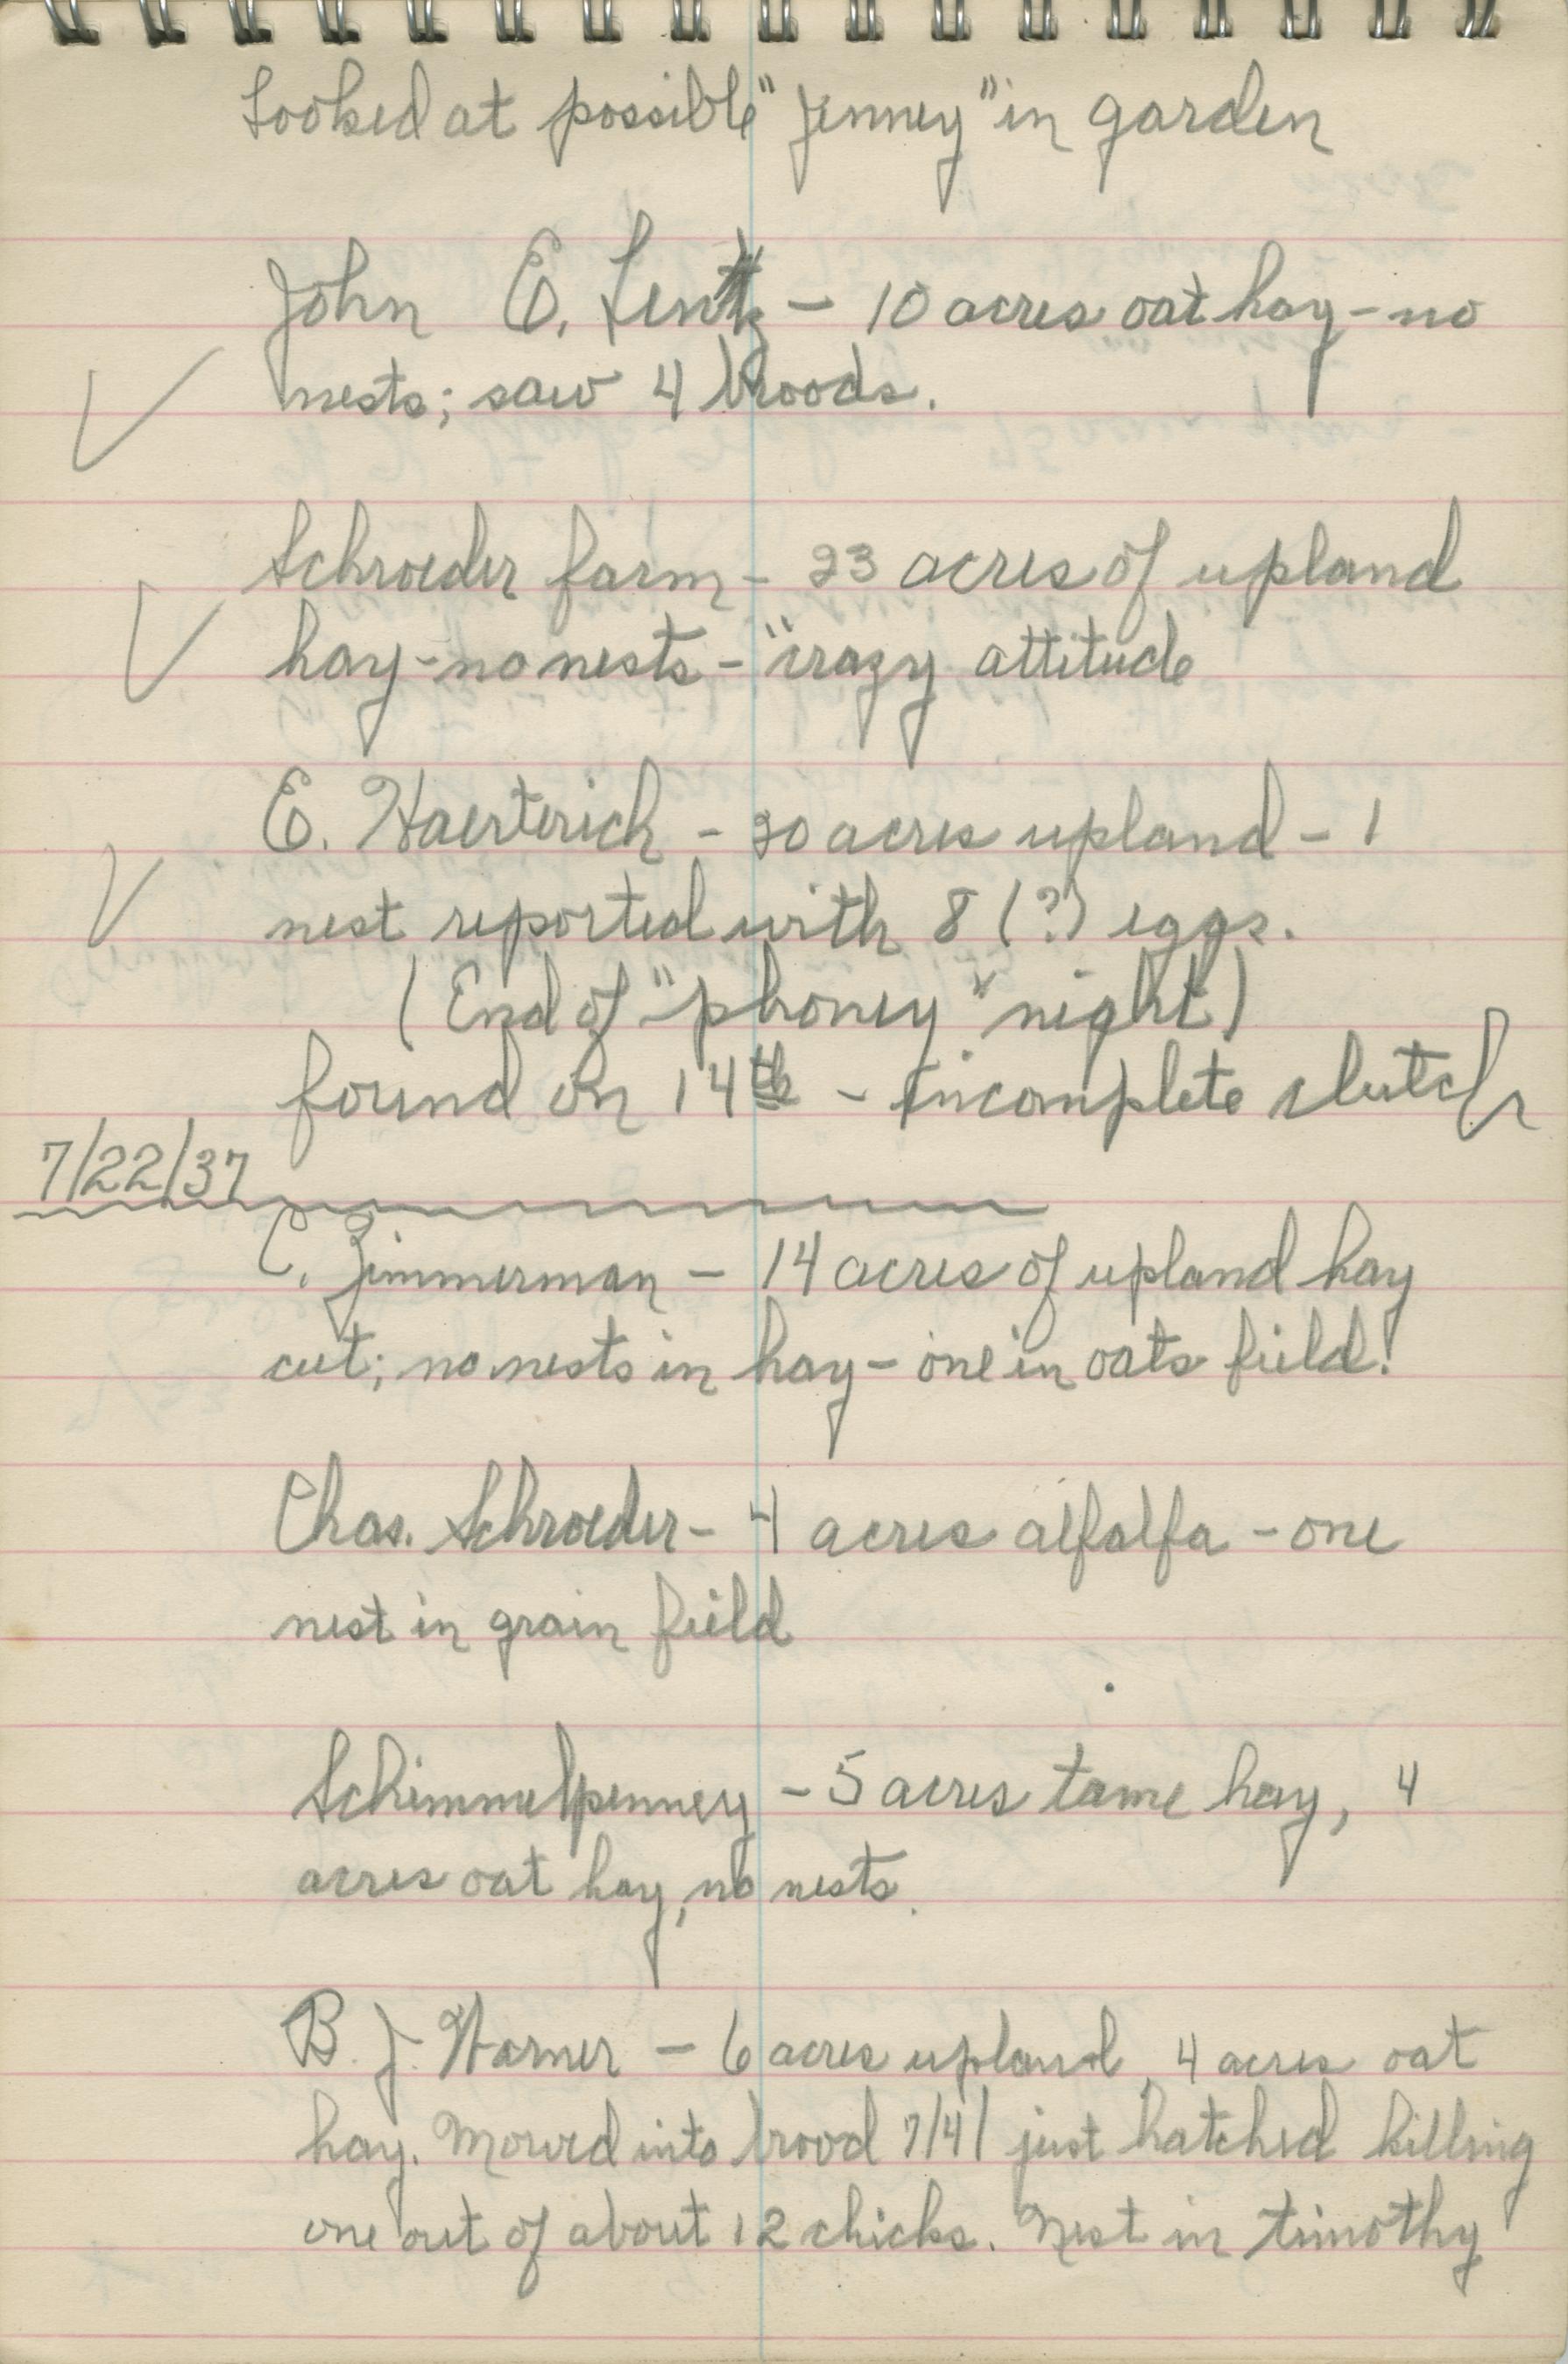 Looked at possible "Jenney" in garden
John E. Lentz - 10 acres oat hay - no
nests; saw 4 broods.
Schroeder farm - 23 acres of upland
hay - no nests - "crazy attitude
E. Haerterich - 30 acres upland - 1
nest reported with 8 (?) eggs.
(End of "phoney" night)
found on 14th - incomplete clutch
7/22/37
C. Zimmerman - 14 acres of upland hay
cut; no nests in hay - one in oats field!
Chas. Schroeder - 4 acres alfalfa - one
nest in grain field
Schimmelpenney - 5 acres tame hay, 4
acres oat hay, no nests.
B. J. Warner - 6 acres upland, 4 acres oat
hay. Mowed into brood 7/4/ just hatched killing
one out of about 12 chicks. Nest in timothy